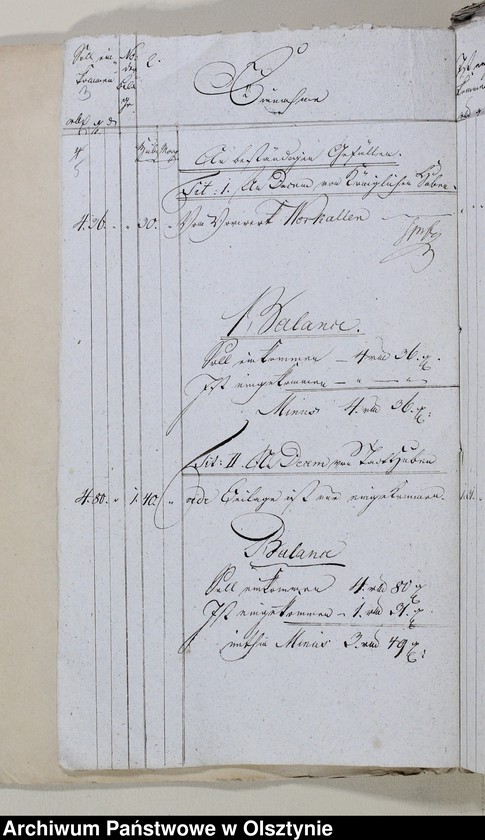 Soll ein-
kommen
No
der
Bela
ge.
2.
Einnahme
An beständigen Gefällen.
Tit: I. An Decem von Königlichen Huben.
4. 36. 30. Vom Vorwerk Workallen
Balance.
Soll einkommen – 4 rtl 36. g.
Ist eingekommen – " – " –
Minus 4. rtl 36. g:
Tit: II. An Decem von Stadt Huben
4. 80. 1. 40. Beilage ist nur eingekommen.
Balance
Soll einkommen 4. rtl 80 g
Ist eingekommen – 1. rtl 31. g
mithin Minus 3. rtl 49 g:
Archiwum Państwowe w Olsztynie